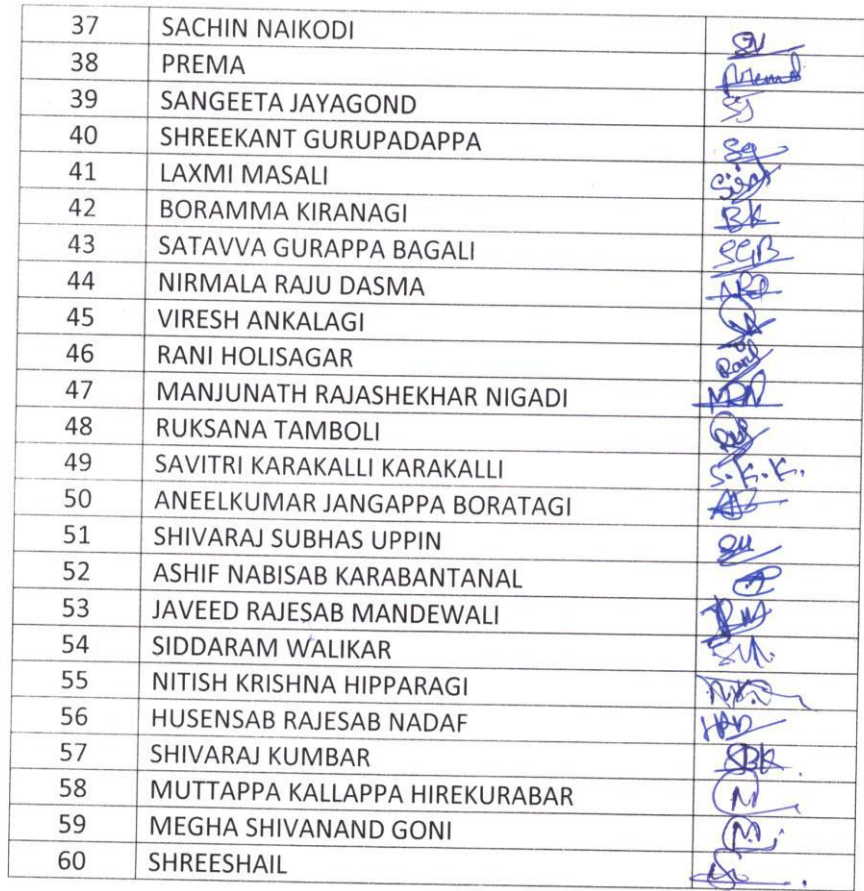 37 SACHIN NAIKODI SN
38 PREMA Prema
39 SANGEETA JAYAGOND SJ
40 SHREEKANT GURUPADAPPA Sg
41 LAXMI MASALI
42 BORAMMA KIRANAGI BK
43 SATAVVA GURAPPA BAGALI SGB
44 NIRMALA RAJU DASMA
45 VIRESH ANKALAGI
46 RANI HOLISAGAR Rani
47 MANJUNATH RAJASHEKHAR NIGADI MRN
48 RUKSANA TAMBOLI
49 SAVITRI KARAKALLI KARAKALLI S.K.K.
50 ANEELKUMAR JANGAPPA BORATAGI
51 SHIVARAJ SUBHAS UPPIN SU
52 ASHIF NABISAB KARABANTANAL
53 JAVEED RAJESAB MANDEWALI JRM
54 SIDDARAM WALIKAR
55 NITISH KRISHNA HIPPARAGI
56 HUSENSAB RAJESAB NADAF
57 SHIVARAJ KUMBAR SBK
58 MUTTAPPA KALLAPPA HIREKURABAR M
59 MEGHA SHIVANAND GONI
60 SHREESHAIL